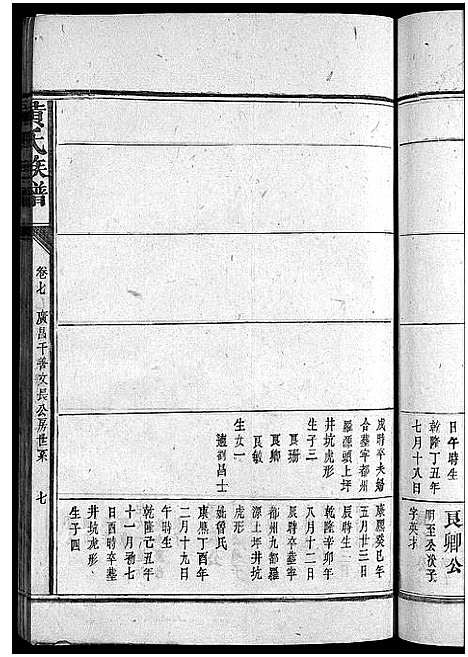 日午時生
乾隆丁丑年
七月十八日
良卿公
明至公次子
字英才
戌時卒夫婦
合墓寧都州
羅源頭上坪
井坑虎形
生子三
良珊
良卿
良敏
生女一
適劉昌士
康熙癸巳年
五月廿三日
辰時生
乾隆辛卯年
八月十二日
辰時卒墓寧
都州九都羅
源上坪井坑
虎形
妣曾氏
康熙丁酉年
二月十九日
午時生
乾隆己丑年
十一月初七
日酉時卒墓
井坑虎形
生子四
黃氏族譜
卷七 廣昌千善文長公房世系 七